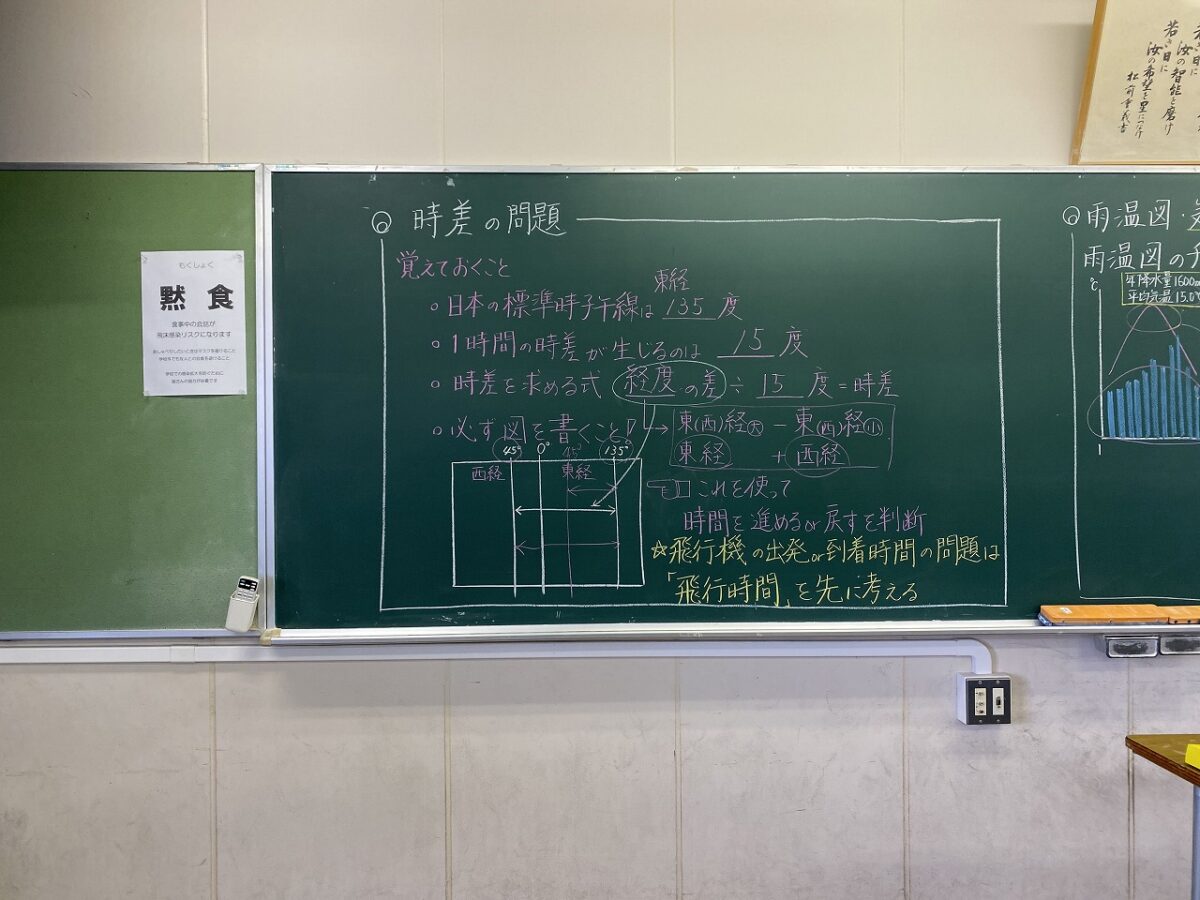 もくしょく
黙 食
食事中の会話が
飛沫感染リスクになります
◎ 時差の問題
覚えておくこと
東経
○ 日本の標準時子午線は 135 度
○ 1時間の時差が生じるのは 15 度
○ 時差を求める式 経度の差 ÷ 15 度 = 時差
○ 必ず図を書くこと!
→ 東(西)経大 - 東(西)経小
東経 + 西経
45° 0° 45° 135°
西経 東経
これを使って
時間を進めるor戻すを判断
☆飛行機の出発or到着時間の問題は
「飛行時間」を先に考える
◎ 雨温図・
雨温図の
℃
年降水量1600
平均気温15.0
若き日に
汝の智能を磨け
若き日に
汝の希望を星につなげ
松前重義書